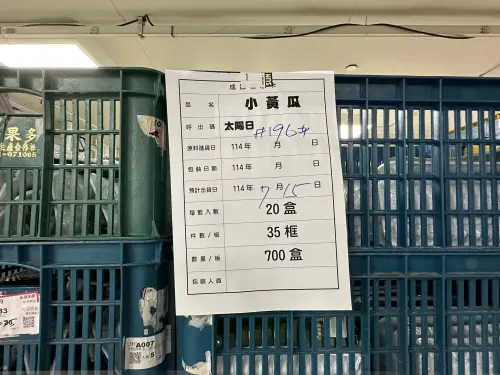 品名 小黃瓜
呼出碼 太陽日 #196#
原料進貨日 114年 月 日
包裝日期 114年 月 日
預計出貨日 114年 7月15日
每籃入數 20盒
件數/板 35框
數量/板 700盒
包裝人員
果多
A007